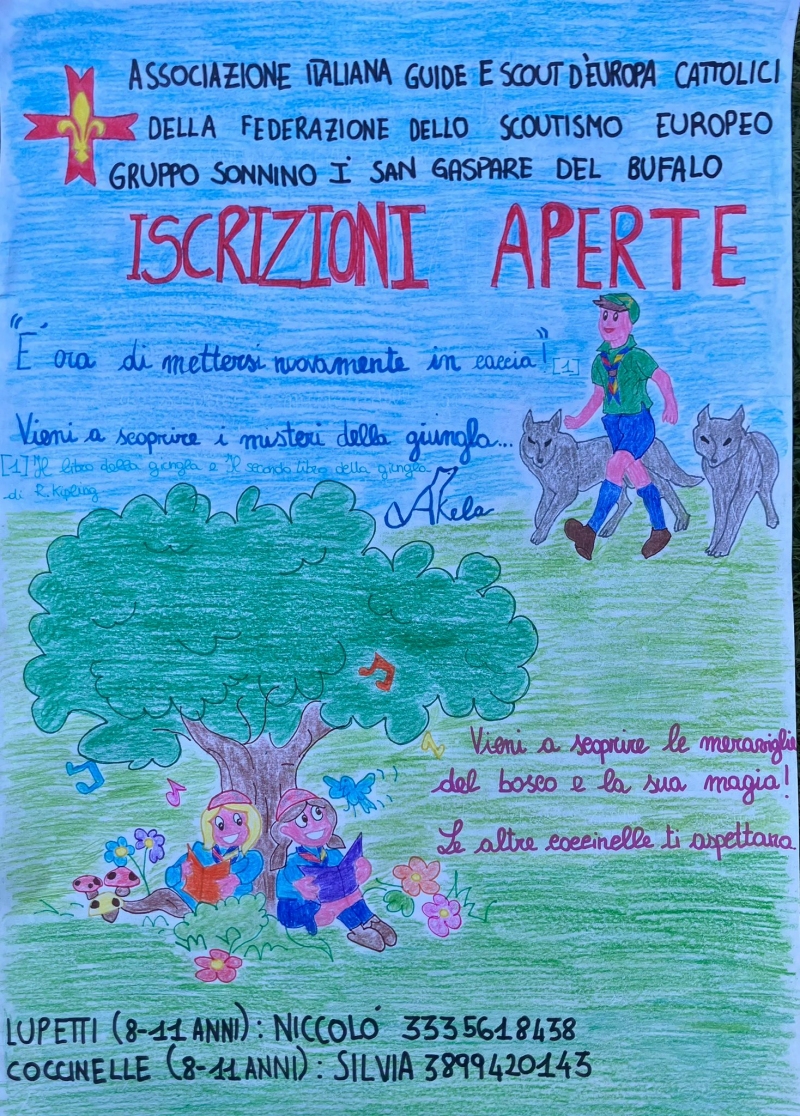 ASSOCIAZIONE ITALIANA GUIDE E SCOUT D'EUROPA CATTOLICI
DELLA FEDERAZIONE DELLO SCOUTISMO EUROPEO
GRUPPO SONNINO I° SAN GASPARE DEL BUFALO
ISCRIZIONI APERTE
"E' ora di mettersi nuovamente in caccia" [1]
Vieni a scoprire i misteri della giungla...
[1] Il libro della giungla e Il secondo libro della giungla
di R. Kipling
Akela
Vieni a scoprire le meraviglie
del bosco e la sua magia!
Le altre coccinelle ti aspettano
LUPETTI (8-11 ANNI): NICCOLÒ 3335618438
COCCINELLE (8-11 ANNI): SILVIA 3899420143